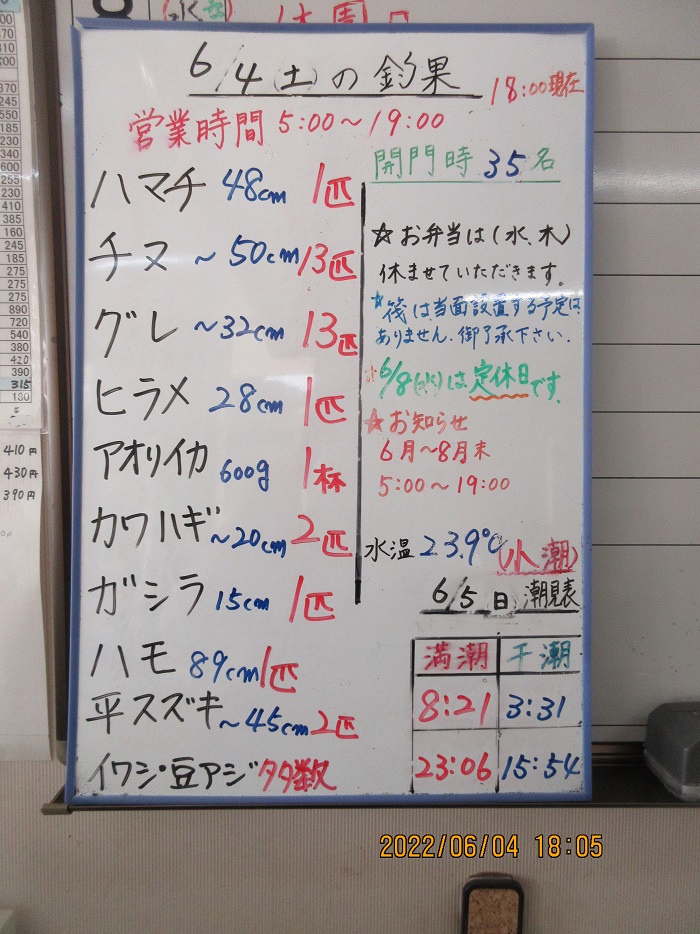 6/4(土)の釣果
18:00現在
営業時間 5:00～19:00
開門時 35名
ハマチ 48cm 1匹
チヌ ～50cm 13匹
グレ ～32cm 13匹
ヒラメ 28cm 1匹
アオリイカ 600g 1杯
カワハギ ～20cm 2匹
ガシラ 15cm 1匹
ハモ 89cm 1匹
平スズキ ～45cm 2匹
イワシ・豆アジ 多数
☆お弁当は(水、木)
休ませていただきます。
☆筏は当面設置する予定は
ありません。御了承下さい。
6/8(水)は定休日です。
☆お知らせ
6月～8月末
5:00～19:00
水温 23.9℃ (小潮)
6/5(日)潮見表
満潮 干潮
8:21 3:31
23:06 15:54
2022/06/04 18:05
370
245
550
185
230
340
600
255
230
410
385
160
245
185
275
275
275
890
720
540
380
420
390
315
180
410円
430円
390円